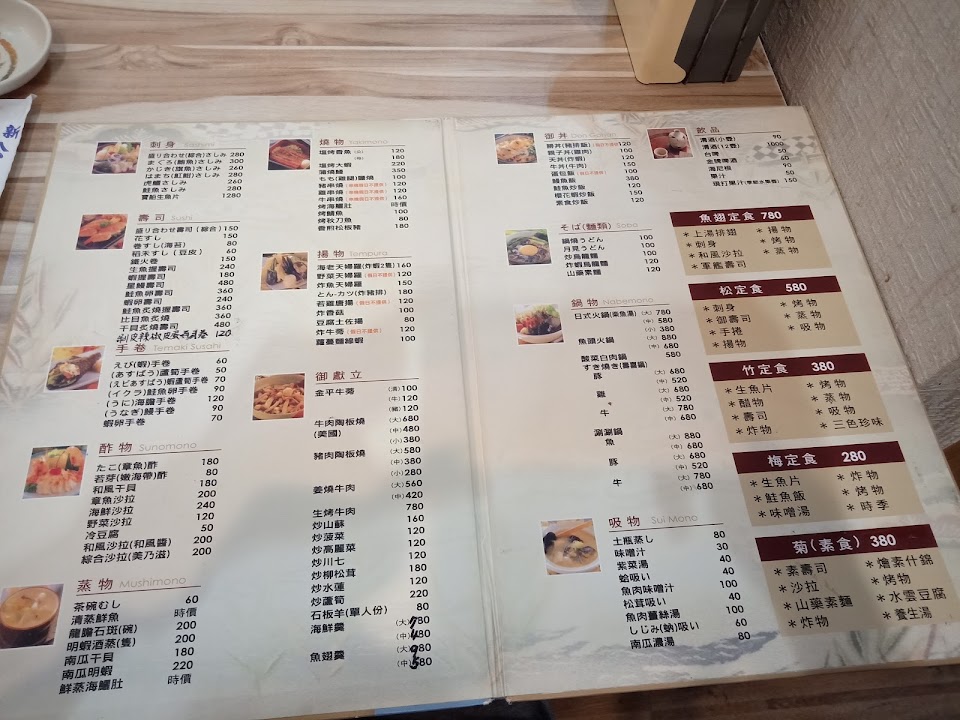 新
刺身 Sashimi
盛り合わせ(綜合)さしみ 280
まぐろ(鮪魚)さしみ 300
かじき(旗魚)さしみ 260
はまち(紅魽)さしみ 280
虎鰮さしみ 260
鮭魚さしみ 260
寶船生魚片 1280
壽司 Sushi
盛り合わせ壽司(綜合) 210
花すし 150
巻すし(海苔) 80
稻禾すし(豆皮) 60
鐵火巻 150
生魚握壽司 240
蝦握壽司 180
星鰻壽司 480
鮭魚卵壽司 360
蝦卵壽司 240
鮭魚炙燒握壽司 360
比目魚炙燒 360
干貝炙燒壽司 480
手卷 Temaki Susahi
えび(蝦)手卷 60
(あすぱう)蘆筍手卷 50
(エビあすぱう)蝦蘆筍手卷 70
(イクラ)鮭魚卵手卷 90
(うに)海膽手卷 120
(うなぎ)鰻手卷 90
蝦卵手卷 70
酢物 Sunomono
たこ(章魚)酢 180
若芽(嫩海帶)酢 80
和風干貝 180
章魚沙拉 200
海鮮沙拉 240
野菜沙拉 120
冷豆腐 50
和風沙拉(和風醬) 200
綜合沙拉(美乃滋) 200
蒸物 Mushimono
茶碗むし 60
清蒸鮮魚 時價
龍膽石斑(碗) 200
明蝦酒蒸(隻) 200
南瓜干貝 180
南瓜明蝦 220
鮮蒸海鱺肚 時價
燒物 Yakimono
塩烤香魚 120
180
塩烤大蝦 220
蒲燒鰻 350
もも(雞腿)鹽燒 100
豬串燒 120
雞串燒 120
牛串燒 160
烤海鱺肚 時價
烤鯖魚 100
烤秋刀魚 80
香煎松板豬 180
揚物 Tempura
海老天婦羅(炸蝦2隻) 160
野菜天婦羅 120
炸魚天婦羅 150
とん-カツ(炸豬排) 180
若雞唐揚 120
炸香菇 100
豆腐土佐揚 80
炸牛蒡 120
蘿蔓麵線蝦 100
御獻立
金平牛蒡 (清) 100
(牛) 120
(豬) 120
牛肉陶板燒 (大) 680
(美國) (中) 480
(小) 380
豬肉陶板燒 (大) 580
(中) 380
(小) 280
姜燒牛肉 (大) 560
(中) 420
生烤牛肉 780
炒山蘇 160
炒菠菜 120
炒高麗菜 120
炒川七 120
炒柳松茸 180
炒水蓮 120
炒蘆筍 120
石板羊(單人份) 80
海鮮羹 (大)
(中)
魚翅羹 (大)
(中)
御丼 Don Gohan
勝丼(豬排飯) 120
親子丼(雞肉) 100
天丼(炸蝦) 120
牛丼(牛肉) 120
蛋包飯 100
鰻魚飯 350
鮭魚炒飯 120
櫻花蝦炒飯 150
素食炒飯 120
そば(麵類) Soba
鍋燒うどん 100
月見うどん 100
炒烏龍麵 100
炸蝦烏龍麵 120
山藥素麵 120
鍋物 Nabemono
日式火鍋(柴魚湯) (大) 780
(中) 580
魚頭火鍋 (大) 880
(中) 680
酸菜白肉鍋 580
すき燒き(壽喜鍋)
豚 (大) 680
(中) 520
雞 (大) 680
(中) 520
牛 (大) 780
(中) 680
涮涮鍋
魚 (大) 880
(中) 680
豚 (大) 680
(中) 520
牛 (大) 780
(中) 680
吸物 Sui Mono
土瓶蒸し 80
味噌汁 30
紫菜湯 40
蛤吸い 40
魚肉味噌汁 100
松茸吸い 40
魚肉薑絲湯 100
しじみ(蜆)吸い 60
南瓜濃湯 80
飲品
清酒(小壺) 90
清酒(12壺) 1000
台啤
金牌啤酒 80
海尼根 90
果汁 80
現打果汁 150
魚翅定食 780
＊上湯排翅 ＊揚物
＊刺身 ＊烤物
＊和風沙拉 ＊蒸物
＊軍艦壽司
松定食 580
＊刺身 ＊烤物
＊御壽司 ＊蒸物
＊手捲 ＊吸物
＊揚物
竹定食 380
＊生魚片 ＊烤物
＊醋物 ＊蒸物
＊壽司 ＊吸物
＊炸物 ＊三色珍味
梅定食 280
＊生魚片 ＊炸物
＊鮭魚飯 ＊烤物
＊味噌湯 ＊時季
菊(素食) 380
＊素壽司 ＊燴素什錦
＊沙拉 ＊烤物
＊山藥素麵 ＊水雲豆腐
＊炸物 ＊養生湯